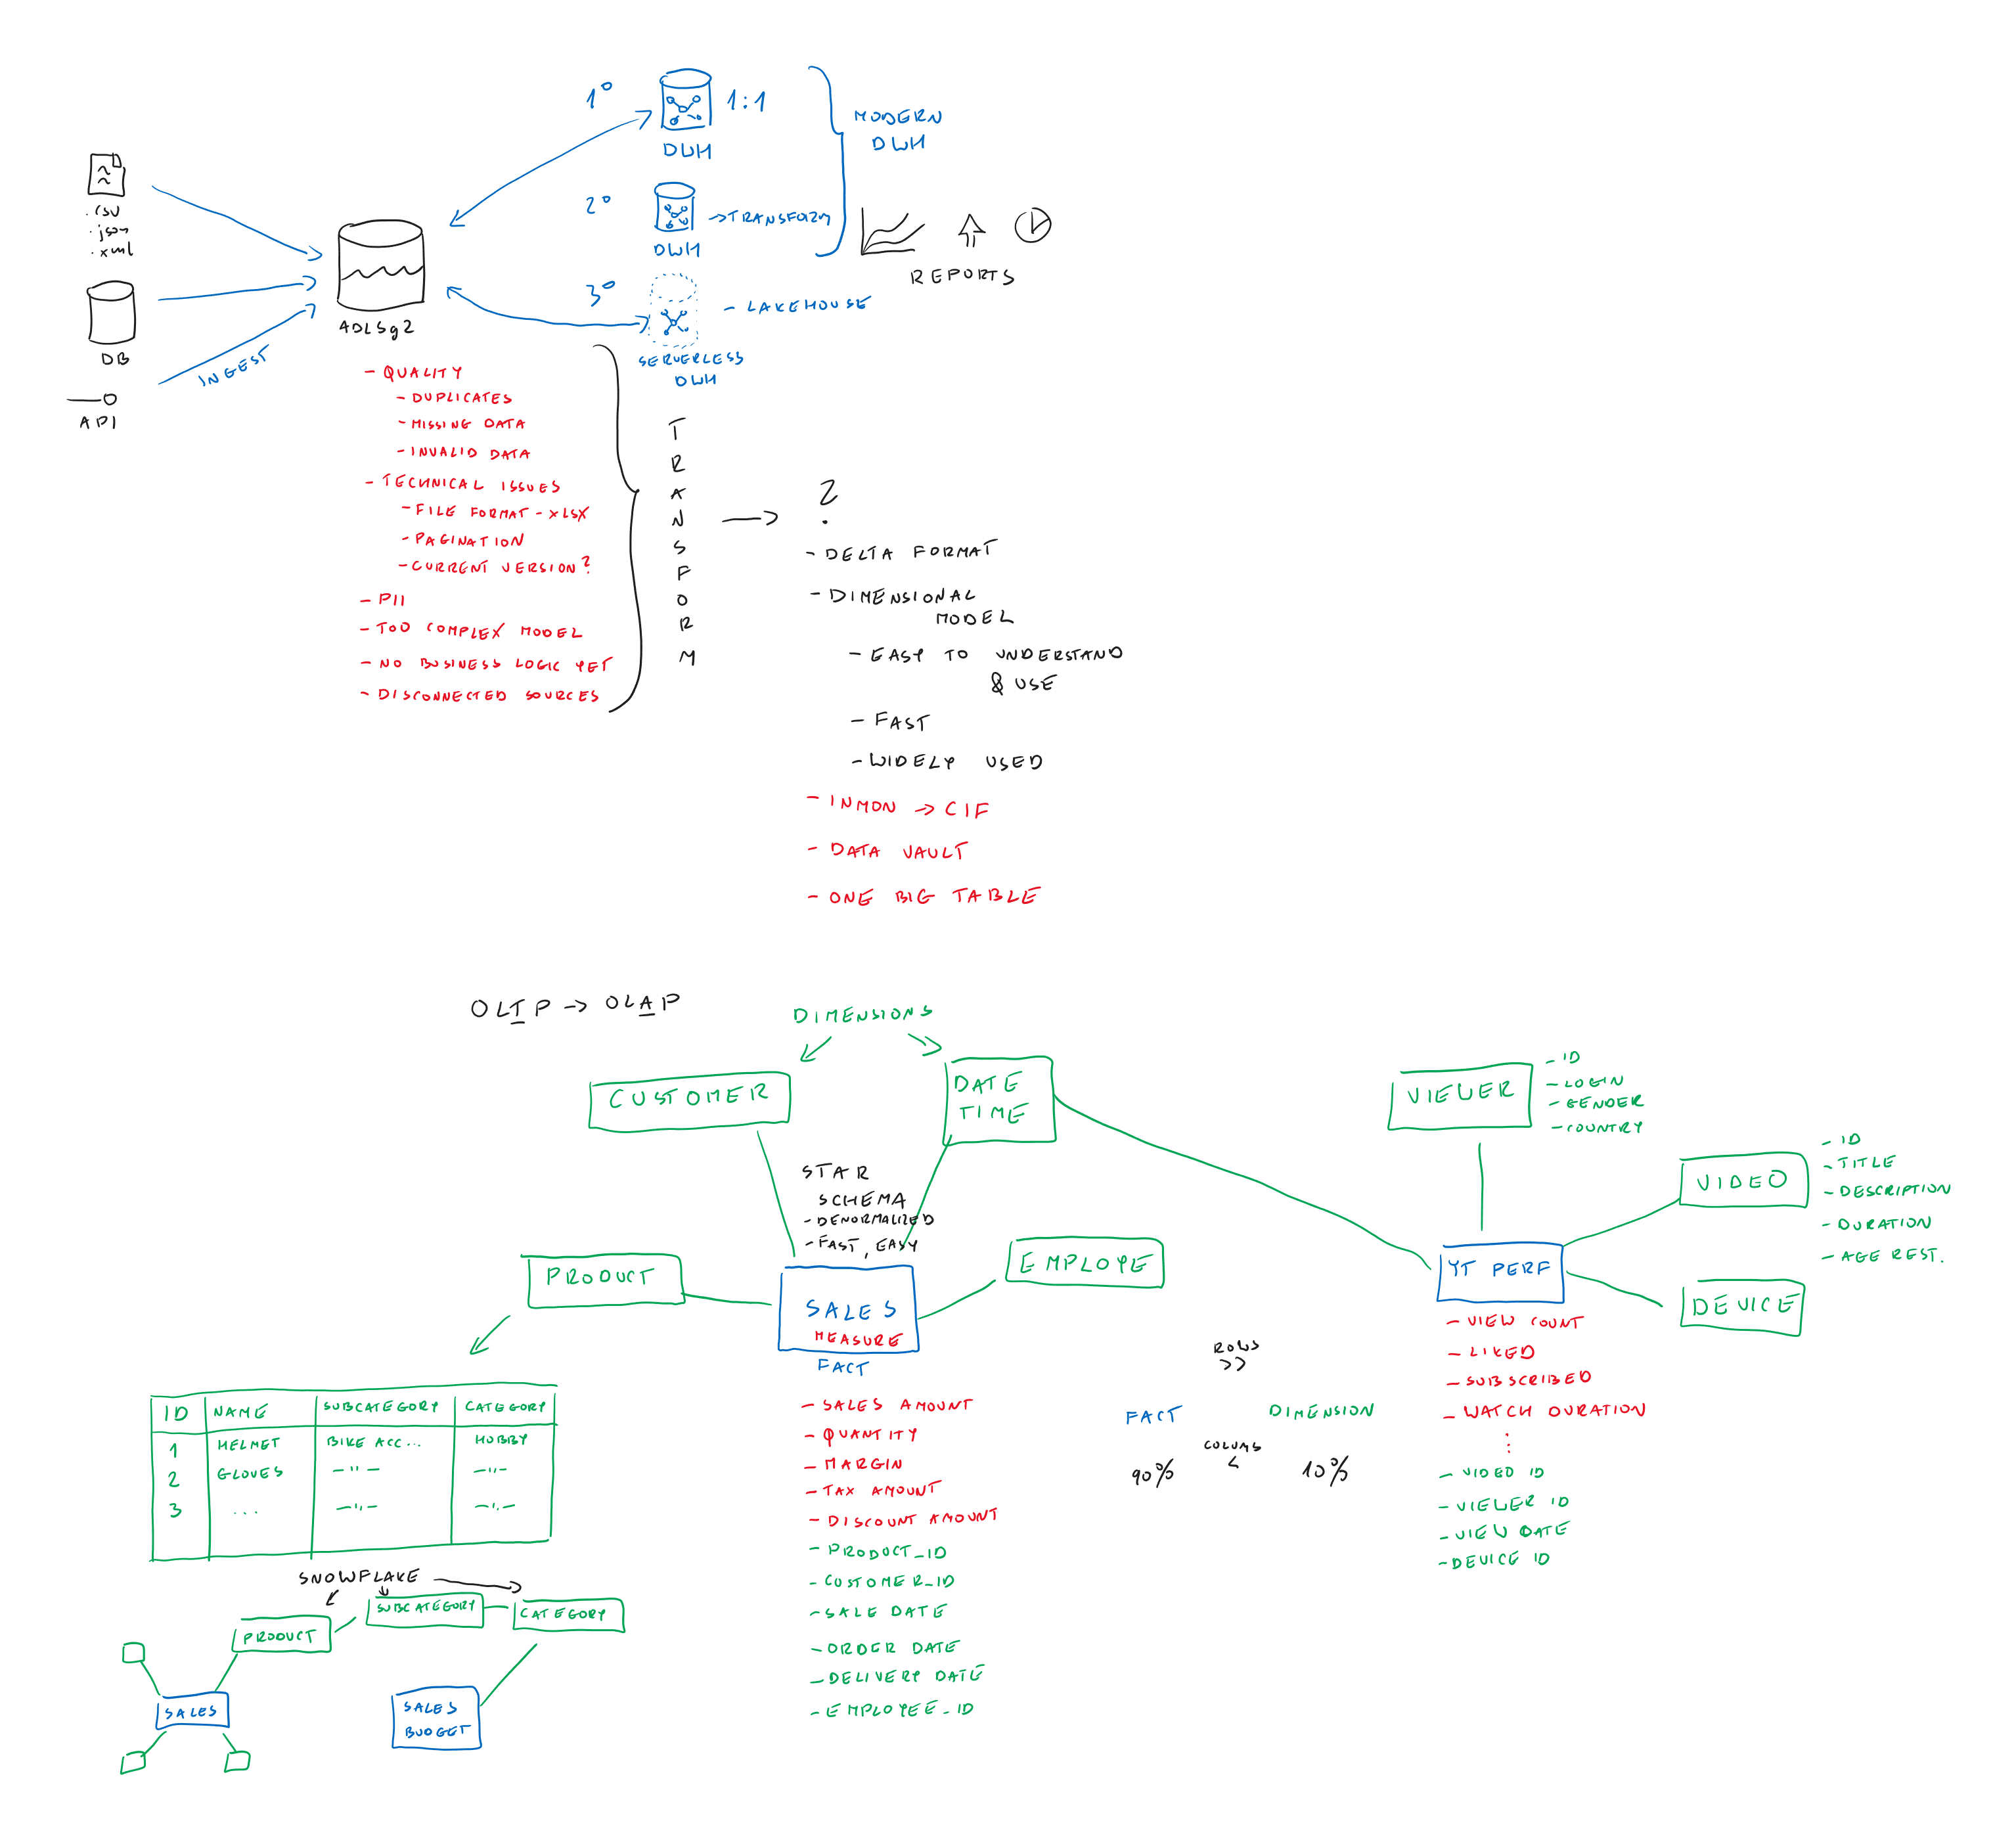 .csv
.json
.xml
DB
API
INGEST
ADLSg2
1°
1:1
DWH
2°
→TRANSFORM
DWH
3°
- LAKEHOUSE
SERVERLESS
DWH
MODERN
DWH
REPORTS
- QUALITY
- DUPLICATES
- MISSING DATA
- INVALID DATA
- TECHNICAL ISSUES
- FILE FORMAT - XLSX
- PAGINATION
- CURRENT VERSION?
- PII
- TOO COMPLEX MODEL
- NO BUSINESS LOGIC YET
- DISCONNECTED SOURCES
T
R
A
N
S
F
O
R
M
?
- DELTA FORMAT
- DIMENSIONAL
MODEL
- EASY TO UNDERSTAND
& USE
- FAST
- WIDELY USED
- INMON → CIF
- DATA VAULT
- ONE BIG TABLE
OLTP → OLAP
DIMENSIONS
CUSTOMER
DATE
TIME
STAR
SCHEMA
- DENORMALIZED
- FAST, EASY
PRODUCT
EMPLOYE
SALES
MEASURE
FACT
- SALES AMOUNT
- QUANTITY
- MARGIN
- TAX AMOUNT
- DISCOUNT AMOUNT
- PRODUCT_ID
- CUSTOMER_ID
- SALE DATE
- ORDER DATE
- DELIVERY DATE
- EMPLOYEE_ID
ID NAME SUBCATEGORY CATEGORY
1 HELMET BIKE ACC... HOBBY
2 GLOVES -"- -"-
3 ... -"- -"-
SNOWFLAKE
PRODUCT
SUBCATEGORY
CATEGORY
SALES
SALES
BUDGET
ROWS
>>
FACT DIMENSION
COLUMS
<
90% 10%
VIEWER
- ID
- LOGIN
- GENDER
- COUNTRY
VIDEO
- ID
- TITLE
- DESCRIPTION
- DURATION
- AGE REST.
YT PERF
DEVICE
- VIEW COUNT
- LIKED
- SUBSCRIBED
- WATCH DURATION
⋮
- VIDEO ID
- VIEWER ID
- VIEW DATE
- DEVICE ID